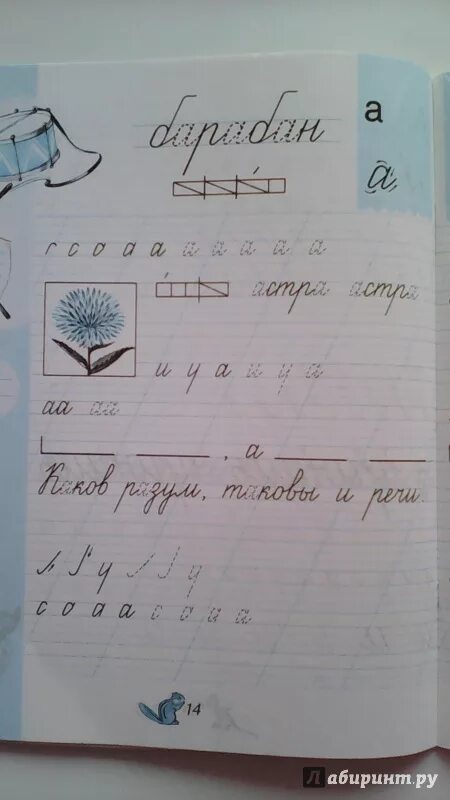 барабан
а
а
г с о а а а а а а а
астра астра
и у а и у а
аа аа
, а
Каков разум, таковы и речи.
у у
с о а а с о а а
14
Лабиринт.ру